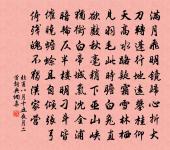 滿月飛明鏡歸心折大
刀轉蓬行地遠攀桂仰
天高水路疑霜雪林棲
見羽毛此時瞻白兔直
欲數秋毫稍下巫山峽
猶銜白帝城氣沉全浦
暗輪仄半樓明刁斗皆
催曉蟾蜍且自傾張弓
倚殘魄不獨漢家營
杜甫八月十五夜月二
首